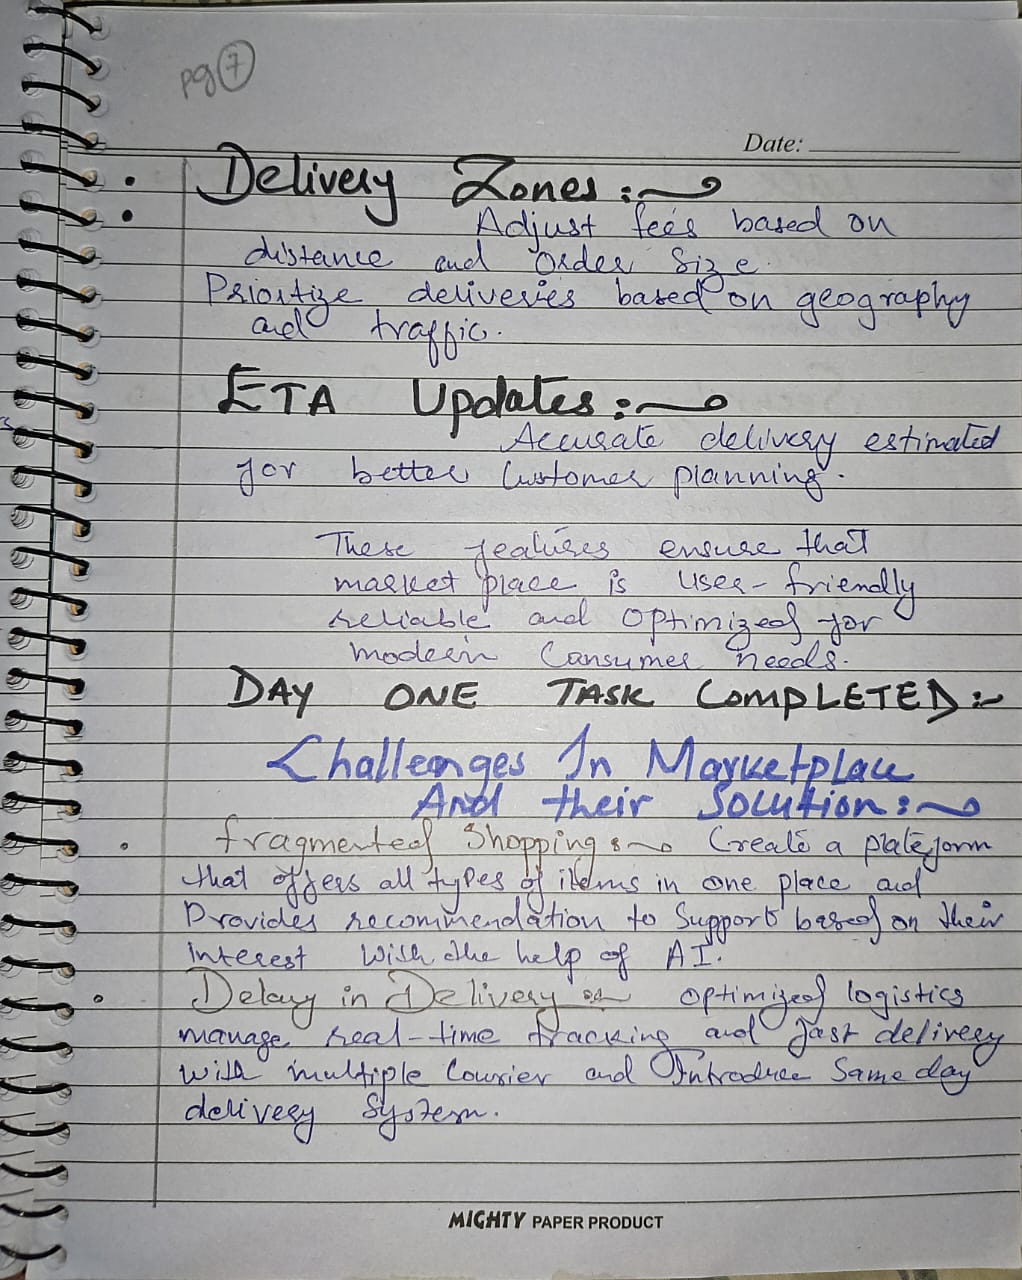 pg 7
Date:
• Delivery Zones :~
• Adjust fees based on
distance and order size.
Prioritize deliveries based on geography
and traffic.
ETA Updates :~
Accurate delivery estimated
for better Customer planning.
These features ensure that
market place is user-friendly
reliable and optimized for
modern Consumer needs.
DAY ONE TASK COMPLETED :~
Challenges In Marketplace
And their Solution :~
• fragmented Shopping :~ Create a plateform
that offers all types of items in one place and
Provides recommendation to Support based on their
interest with the help of AI.
• Delay in Delivery :~ optimized logistics
manage real-time tracking and fast delivery
with multiple Courier and Introduce Same day
delivery System.
MIGHTY PAPER PRODUCT